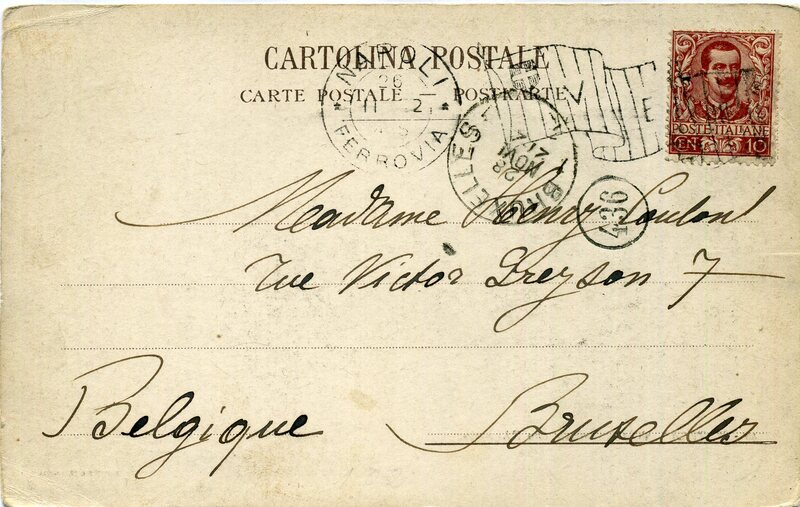 CARTOLINA POSTALE
CARTE POSTALE POSTKARTE
NAPOLI
26
11
FERROVIA
BRUXELLES 1
28
NOVI
POSTE ITALIANE
CENT 10
436
Madame Henry Coulont
rue Victor Greyson 7
Belgique Bruxelles